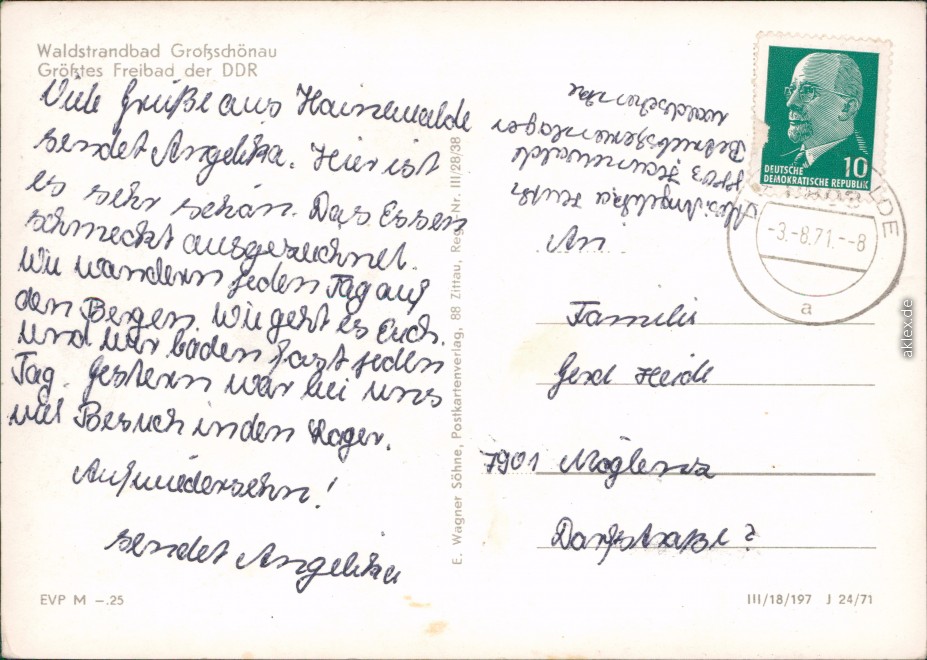 Waldstrandbad Großschönau
Größtes Freibad der DDR
Viele Grüße aus Hainewalde
sendet Angelika. Hier ist
es sehr schön. Das Essen
schmeckt ausgezeichnet.
Wir wandern jeden Tag auf
den Bergen. Wie geht es Euch.
und wir baden fast jeden
Tag. Gestern war bei uns
viel Besuch in den Lager.
Auf wiedersehn!
sendet Angelika
EVP M –.25
E. Wagner Söhne, Postkartenverlag, 88 Zittau, Reg.-Nr. III/28/38
Abs. Angelika
8903 Hainewalde
Betriebsferienlager
Waldschenke
DEUTSCHE
DEMOKRATISCHE REPUBLIK
10
-3.-8.71.--8
a
An
Familie
Gerd Heide
7901 Möglenz
Dorfstraße 2
III/18/197 J 24/71
aklex.de